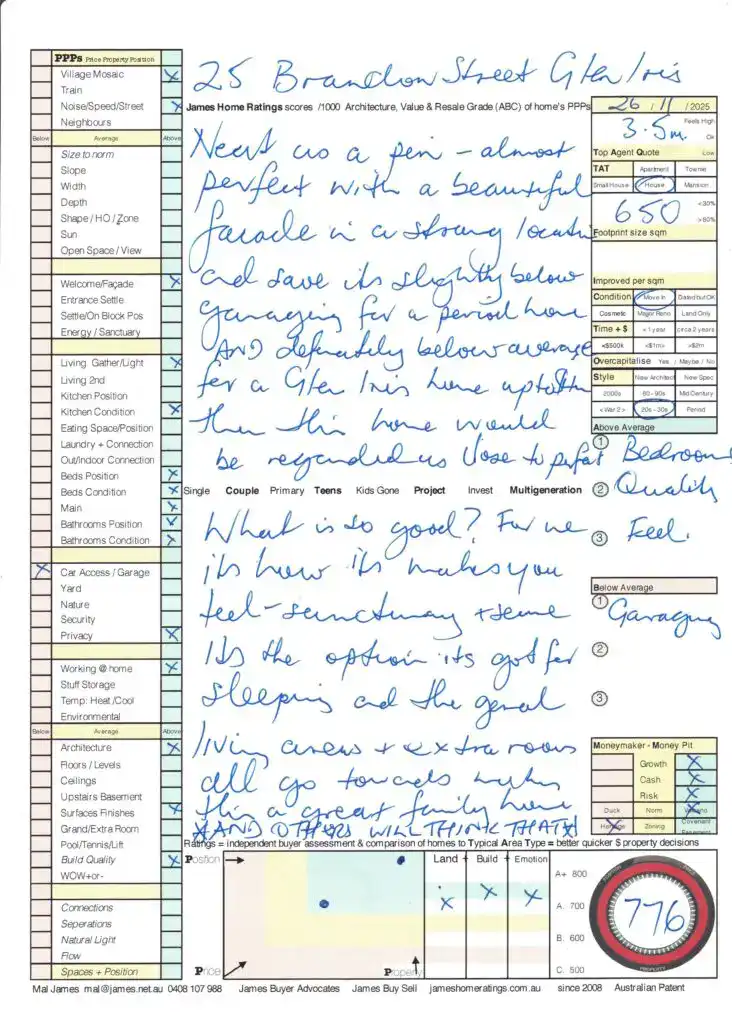 25 Brandon Street Glen Iris
PPPs Price Property Position
Village Mosaic
Train
Noise/Speed/Street
Neighbours
Below Average Above
Size to norm
Slope
Width
Depth
Shape / HO / Zone
Sun
Open Space / View
Welcome/Façade
Entrance Settle
Settle/On Block Pos
Energy / Sanctuary
Living Gather/Light
Living 2nd
Kitchen Position
Kitchen Condition
Eating Space/Position
Laundry + Connection
Out/Indoor Connection
Beds Position
Beds Condition
Main
Bathrooms Position
Bathrooms Condition
Car Access / Garage
Yard
Nature
Security
Privacy
Working @ home
Stuff Storage
Temp: Heat /Cool
Environmental
Below Average Above
Architecture
Floors / Levels
Ceilings
Upstairs Basement
Surfaces Finishes
Grand/Extra Room
Pool/Tennis/Lift
Build Quality
WOW+or-
Connections
Seperations
Natural Light
Flow
Spaces + Position
James Home Ratings scores /1000 Architecture, Value & Resale Grade (ABC) of home's PPPs
Neat as a pin - almost
perfect with a beautiful
facade in a strong location
and save its slightly below
garaging for a period home
AND definitely below average
for a Glen Iris home uptoth
then this home would
be regarded as close to perfect
Single Couple Primary Teens Kids Gone Project Invest Multigeneration
What is so good? For me
its how its makes you
feel - sanctuary + serene
Its the option its got for
sleeping and the general
living areas + extra room
all go towards making
this a great family home
*AND OTHERS WILL THINK THAT*
26 / 11 / 2025
3.5m
Feels High
Ok
Top Agent Quote Low
TAT Apartment Townie
Small House House Mansion
650
<30%
>80%
Footprint size sqm
Improved per sqm
Condition Move In Dated but OK
Cosmetic Major Reno Land Only
Time + $ < 1 year circa 2 years
<$500k <$1m> >$2m
Overcapitalise Yes / Maybe / No
Style New Architect New Spec
2000s 80 - 90s Mid Century
< War 2 > 20s - 30s Period
Above Average
1 Bedrooms
2 Quality
3 Feel.
Below Average
1 Garaging
2
3
Moneymaker - Money Pit
Growth
Cash
Risk
Duck Norm
Heritage Zoning Covenant
Ratings = independent buyer assessment & comparison of homes to Typical Area Type = better quicker $ property decisions
Position
Price
Property
Land + Build + Emotion
A+ 800
A. 700
B. 600
C. 500
776
PROPERTY
Mal James mal@james.net.au 0408 107 988 James Buyer Advocates James Buy Sell jameshomeratings.com.au since 2008 Australian Patent